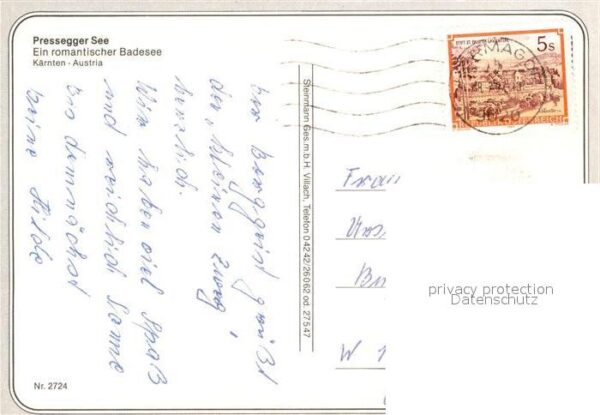 Pressegger See
Ein romantischer Badesee
Kärnten - Austria
5s
Steinmann Ges.m.b.H. Villach, Telefon 04242/26062 od. 27547
Ein Berggeist grüßt
den kleinen Zwerg,
herzlich.
Wir haben viel Spaß
und reichlich Sonne
Bis demnächst
Deine Hilde
Frau
W
privacy protection
Datenschutz
Nr. 2724